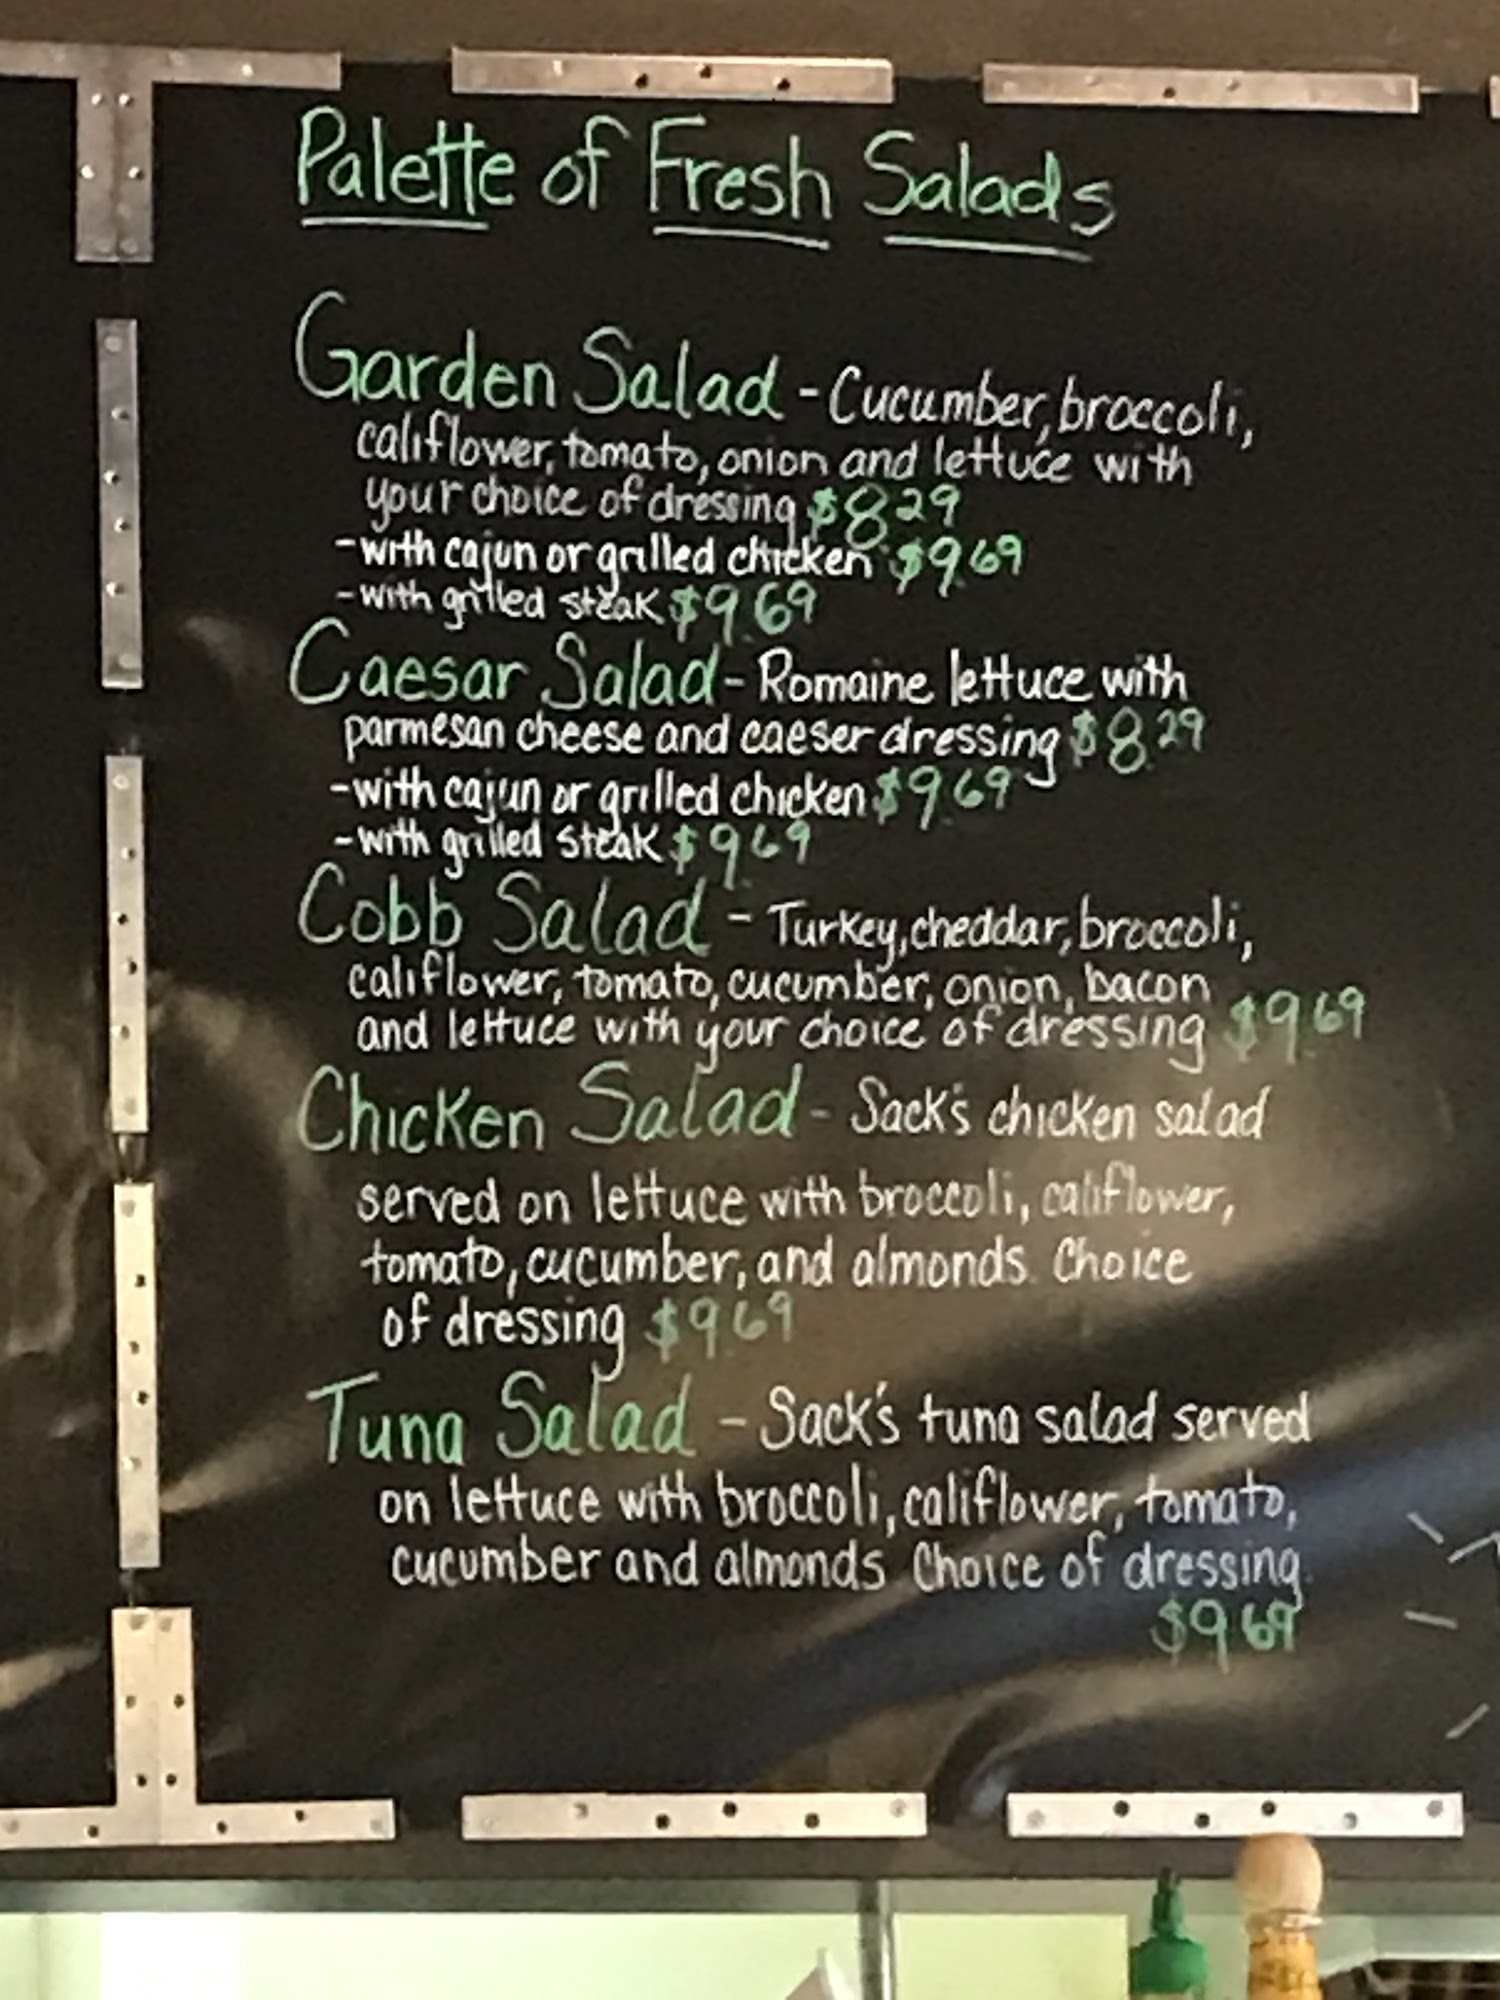 Palette of Fresh Salads
Garden Salad - Cucumber, broccoli,
califlower, tomato, onion and lettuce with
your choice of dressing $8.29
- with cajun or grilled chicken $9.69
- with grilled steak $9.69
Caesar Salad - Romaine lettuce with
parmesan cheese and caeser dressing $8.29
- with cajun or grilled chicken $9.69
- with grilled steak $9.69
Cobb Salad - Turkey, cheddar, broccoli,
califlower, tomato, cucumber, onion, bacon
and lettuce with your choice of dressing $9.69
Chicken Salad - Sack's chicken salad
served on lettuce with broccoli, califlower,
tomato, cucumber, and almonds. Choice
of dressing $9.69
Tuna Salad - Sack's tuna salad served
on lettuce with broccoli, califlower, tomato,
cucumber and almonds. Choice of dressing
$9.69